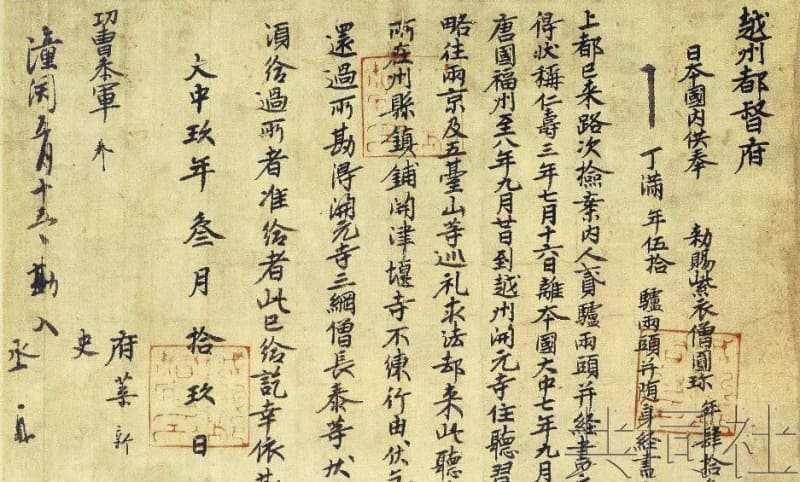 越州都督府
日本國内供奉 勅賜紫衣僧圓珍 年肆拾
丁滿 年伍拾 驢兩頭并随身經書
上都已来路次檢案内人貳驢兩頭并經書
得状稱仁壽三年七月十六日離本國大中七年九月
唐國福州至八年九月廿日到越州開元寺住聽習
略往兩京及五臺山等巡礼求法却来此聽
所在州縣鎮鋪関津堰寺不練行由伏乞
還過所勘得開元寺三綱僧長泰等状
須給過所者准給者此已給訖幸依
大中玖年叁月拾玖日
府葉新
功曹参軍
史
潼関五月十五日勘入
丞
共同社